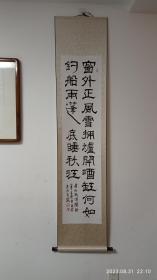 窗外正風雪擁爐開酒缸何如
釣船雨蓬底睡秋江
2023.08.31 22:10